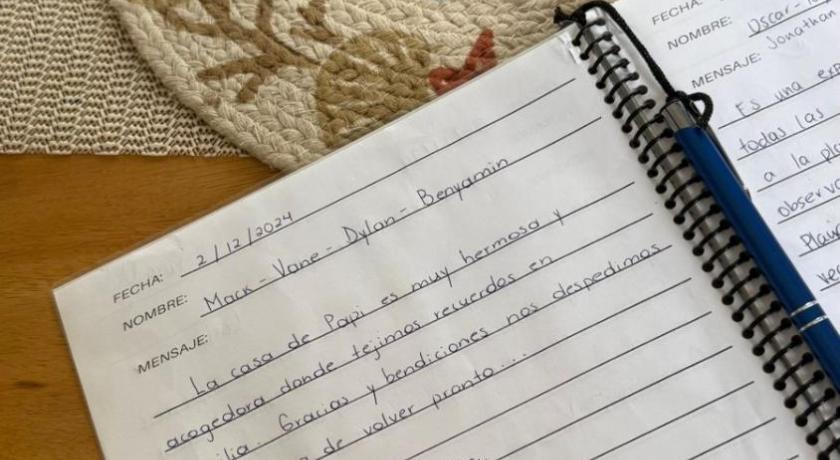 FECHA: 2/12/2024
NOMBRE: Mack - Vane - Dylan - Benyamin
MENSAJE:
La casa de Papi es muy hermosa y
acogedora donde tejimos recuerdos en
ilia. Gracias y bendiciones nos despedimos
de volver pronto...
FECHA:
NOMBRE: Oscar -
MENSAJE: Jonathan
Es una exp
todas las
a la pla
observ